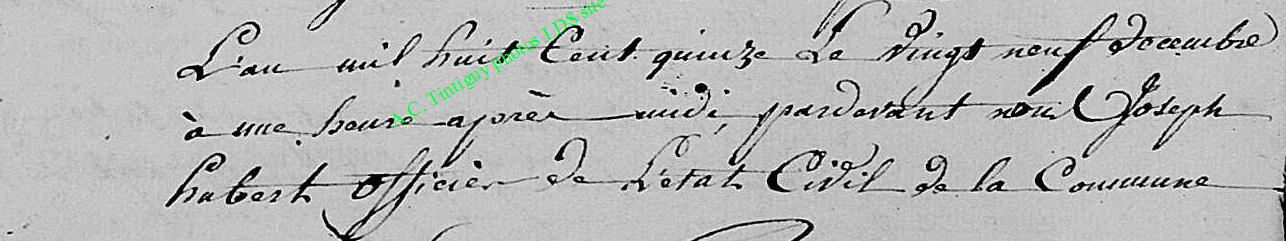 L'an mil huit Cent quinze Le vingt neuf Decembre
à une heure après midi, pardevant nous Joseph
hubert officier de L'etat Civil de la Commune
A.C. Tintiguy photos LDS site